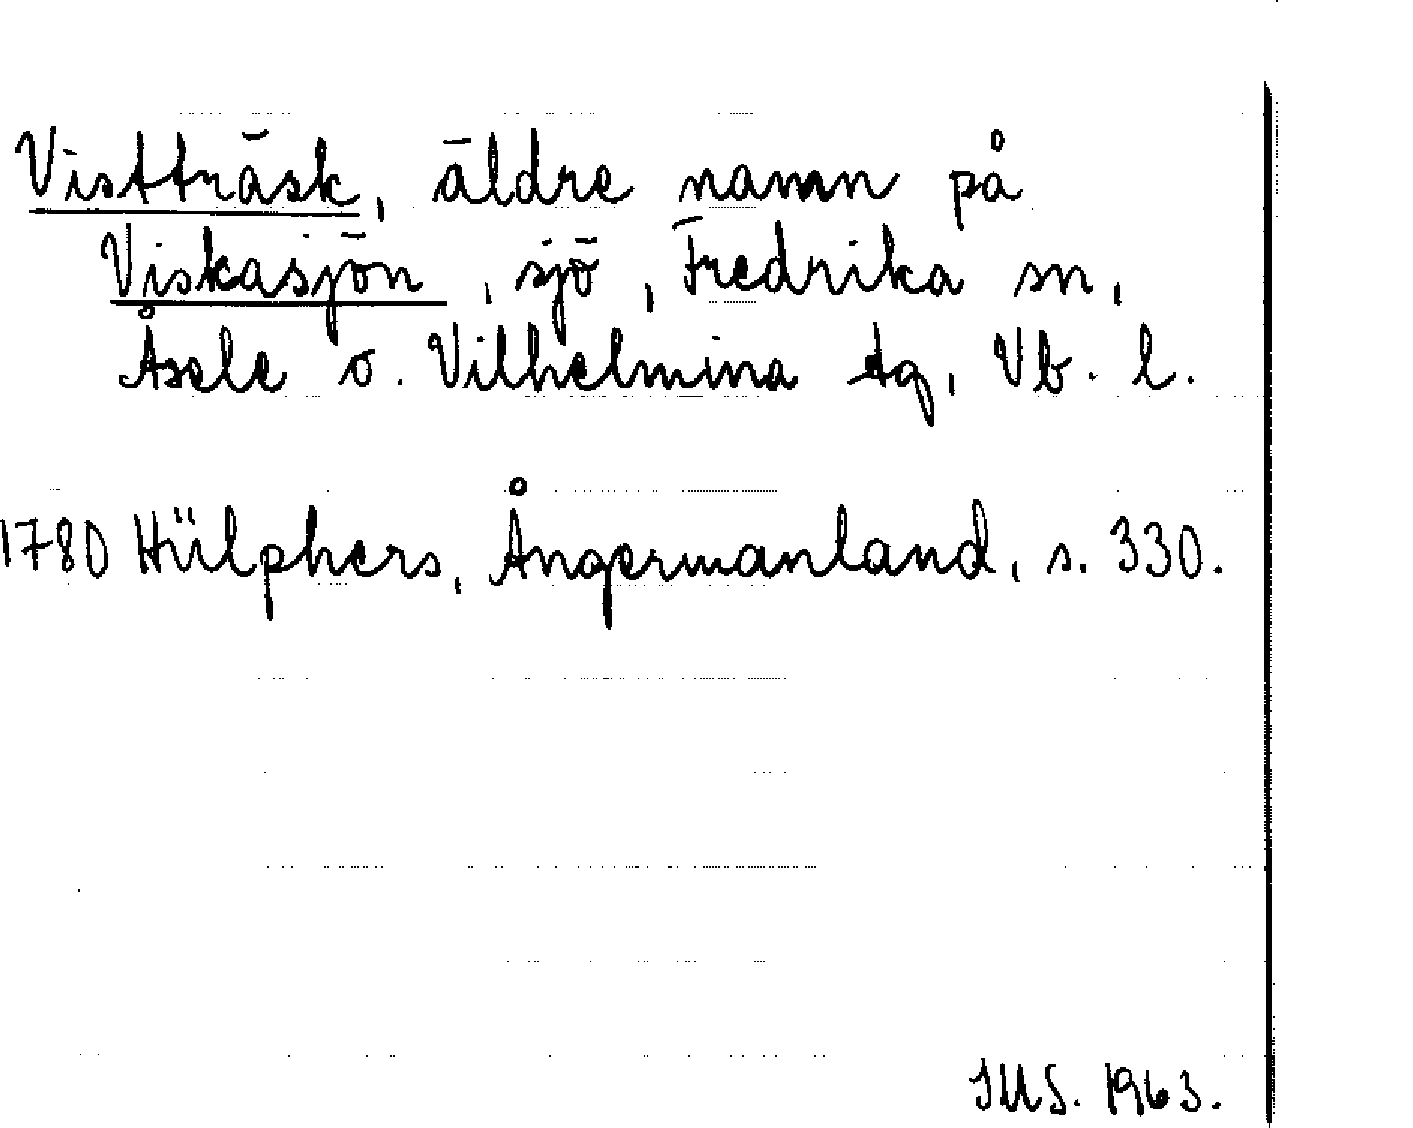 Vistträsk, äldre namn på
Viskasjön, sjö, Fredrika sn,
Åsele o. Vilhelmina tg, Vb. l.
1780 Hülphers, Ångermanland, s. 330.
IUS. 1963.